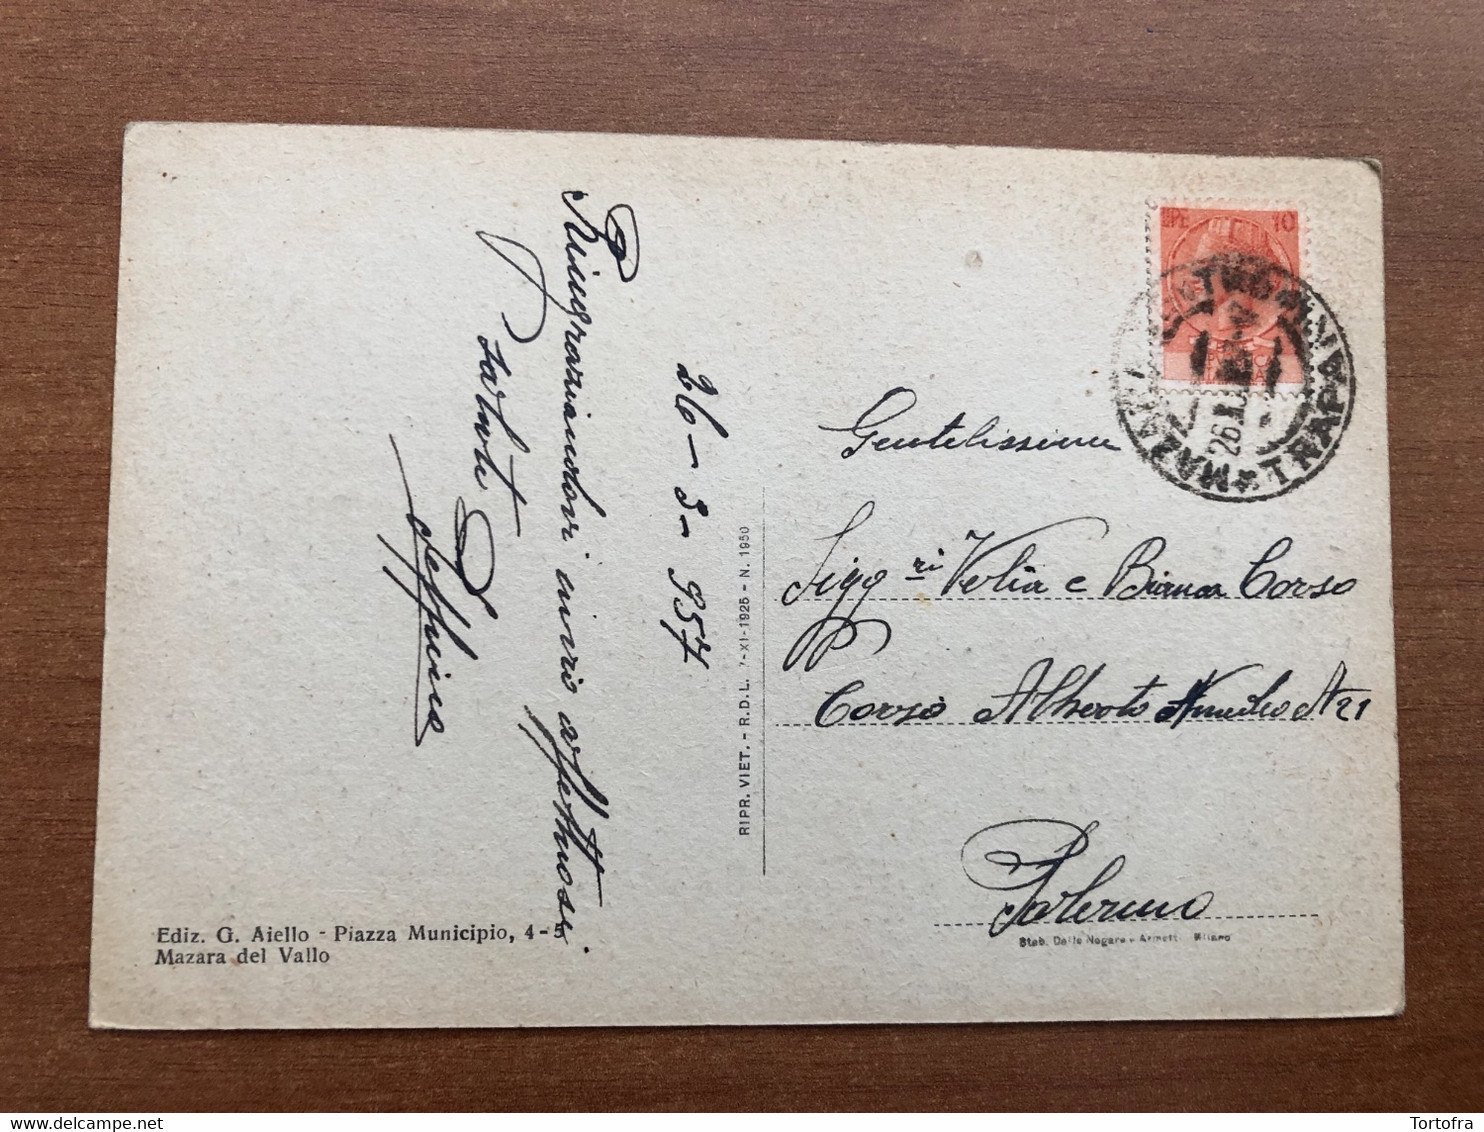 Ringraziandovi invio affettuosi
saluti
26-3-957
RIPR. VIET. - R.D.L. 7-XI-1925 - N. 1950
Ediz. G. Aiello - Piazza Municipio, 4-5
Mazara del Vallo
LIRE 10
MAZARA TRAPANI
26
Gentilissime
Sigg.ri Velia e Bianca Corso
Corso Alberto Amedeo N 21
Palermo
Stab. Dalle Nogare e Armetti Milano
Tortofra